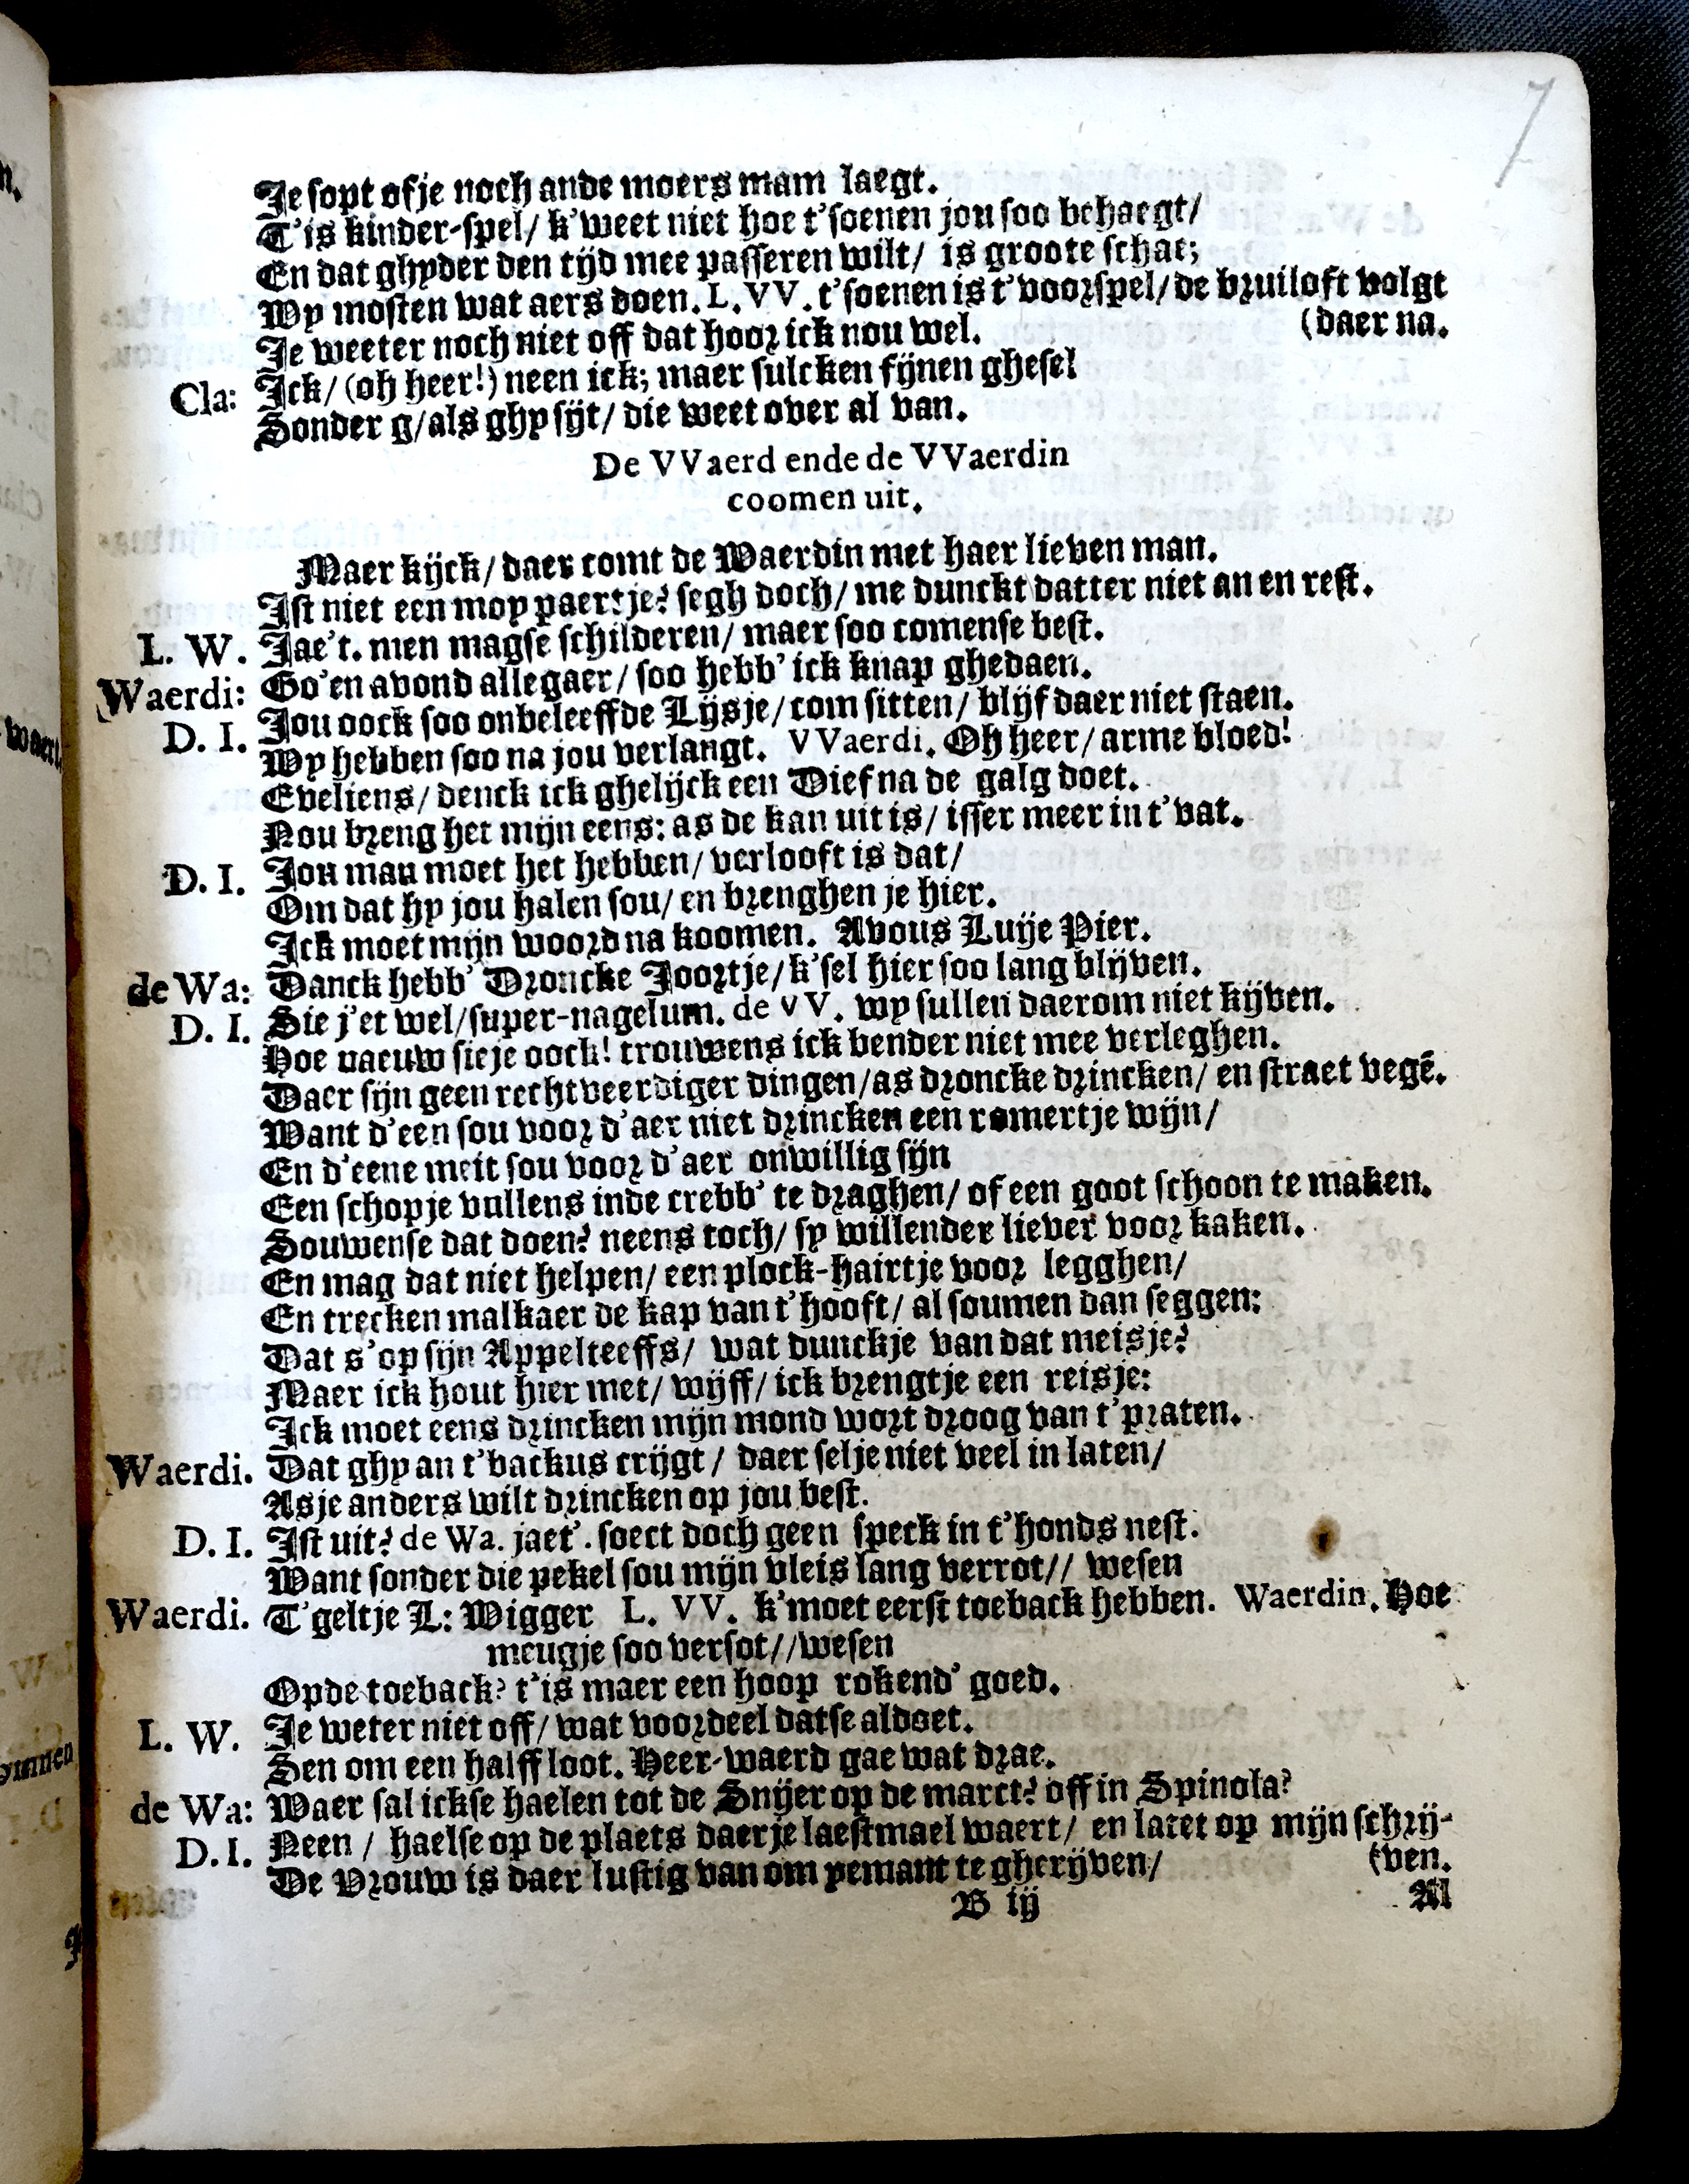 7
Je sopt ofje noch ande moers mam laegt.
T'is kinder-spel/ k'weet niet hoe t'soenen jou soo behaegt/
En dat ghyder den tijd mee passeren wilt/ is groote schae;
Wy mosten wat aers doen. L. VV. t'soenen is t'voorspel/ de bruiloft volgt
Je weeter noch niet off dat hoor ick nou wel. (daer na.
Cla: Ick/ (oh heer!) neen ick; maer sulcken fijnen ghesel
Sonder g/ als ghy sijt/ die weet over al van.
De VVaerd ende de VVaerdin
coomen uit.
Maer kijck/ daer comt de Waerdin met haer lieven man.
Ist niet een moy paertje? segh doch/ me dunckt datter niet an en rest.
L. W. Jae't. men magse schilderen/ maer soo comense best.
Waerdi: Go'en avond allegaer/ soo hebb' ick knap ghedaen.
D. I. Jou oock soo onbeleeffde Lijsje/ com sitten/ blijf daer niet staen.
Wy hebben soo na jou verlangt. VVaerdi. Oh heer/ arme bloed!
Eveliens/ denck ick ghelijck een Dief na de galg doet.
Nou breng het mijn eens: as de kan uit is/ isser meer in t'vat.
D. I. Jou man moet het hebben/ verlooft is dat/
Om dat hy jou halen sou/ en brenghen je hier.
Ick moet mijn woord na koomen. Avous Luije Pier.
de Wa: Danck hebb' Droncke Joortje/ k'sel hier soo lang blijven.
D. I. Sie j'et wel/ super-nagelum. de vV. wy sullen daerom niet kijven.
Hoe naeuw sieje oock! trouwens ick bender niet mee verleghen.
Daer sijn geen rechtveerdiger dingen/ as droncke drincken/ en straet vegē.
Want d'een sou voor d'aer niet drincken een romertje wijn/
En d'eene meit sou voor d'aer onwillig sijn
Een schopje vullens inde crebb' te draghen/ of een goot schoon te maken.
Souwense dat doen? neens toch/ sy willender liever voor kaken.
En mag dat niet helpen/ een plock-hairtje voor legghen/
En trecken malkaer de kap van t'hooft/ al soumen dan seggen:
Dat s'op sijn Appelteeffs/ wat dunckje van dat meisje?
Maer ick hout hier met/ wijff/ ick brengtje een reisje:
Ick moet eens drincken mijn mond wort droog van t'praten.
Waerdi. Dat ghy an t'backus crijgt/ daer selje niet veel in laten/
Asje anders wilt drincken op jou best.
D. I. Ist uit? de Wa. jaet'. soect doch geen speck in t'honds nest.
Want sonder die pekel sou mijn vleis lang verrot// wesen
Waerdi. T'geltje L: Wigger L. VV. k'moet eerst toeback hebben. Waerdin. Hoe
meugje soo versot//wesen
Opde toeback? t'is maer een hoop rokend' goed.
L. W. Je weter niet off/ wat voordeel datse al doet.
Sen om een halff loot. Heer-waerd gae wat drae.
de Wa: Waer sal ickse haelen tot de Snijer op de marct? off in Spinola?
D. I. Neen/ haelse op de plaets daer je laestmael waert/ en latet op mijn schrij-
De Vrouw is daer lustig van om yemant te gherijven/ (ven.
B ij Al